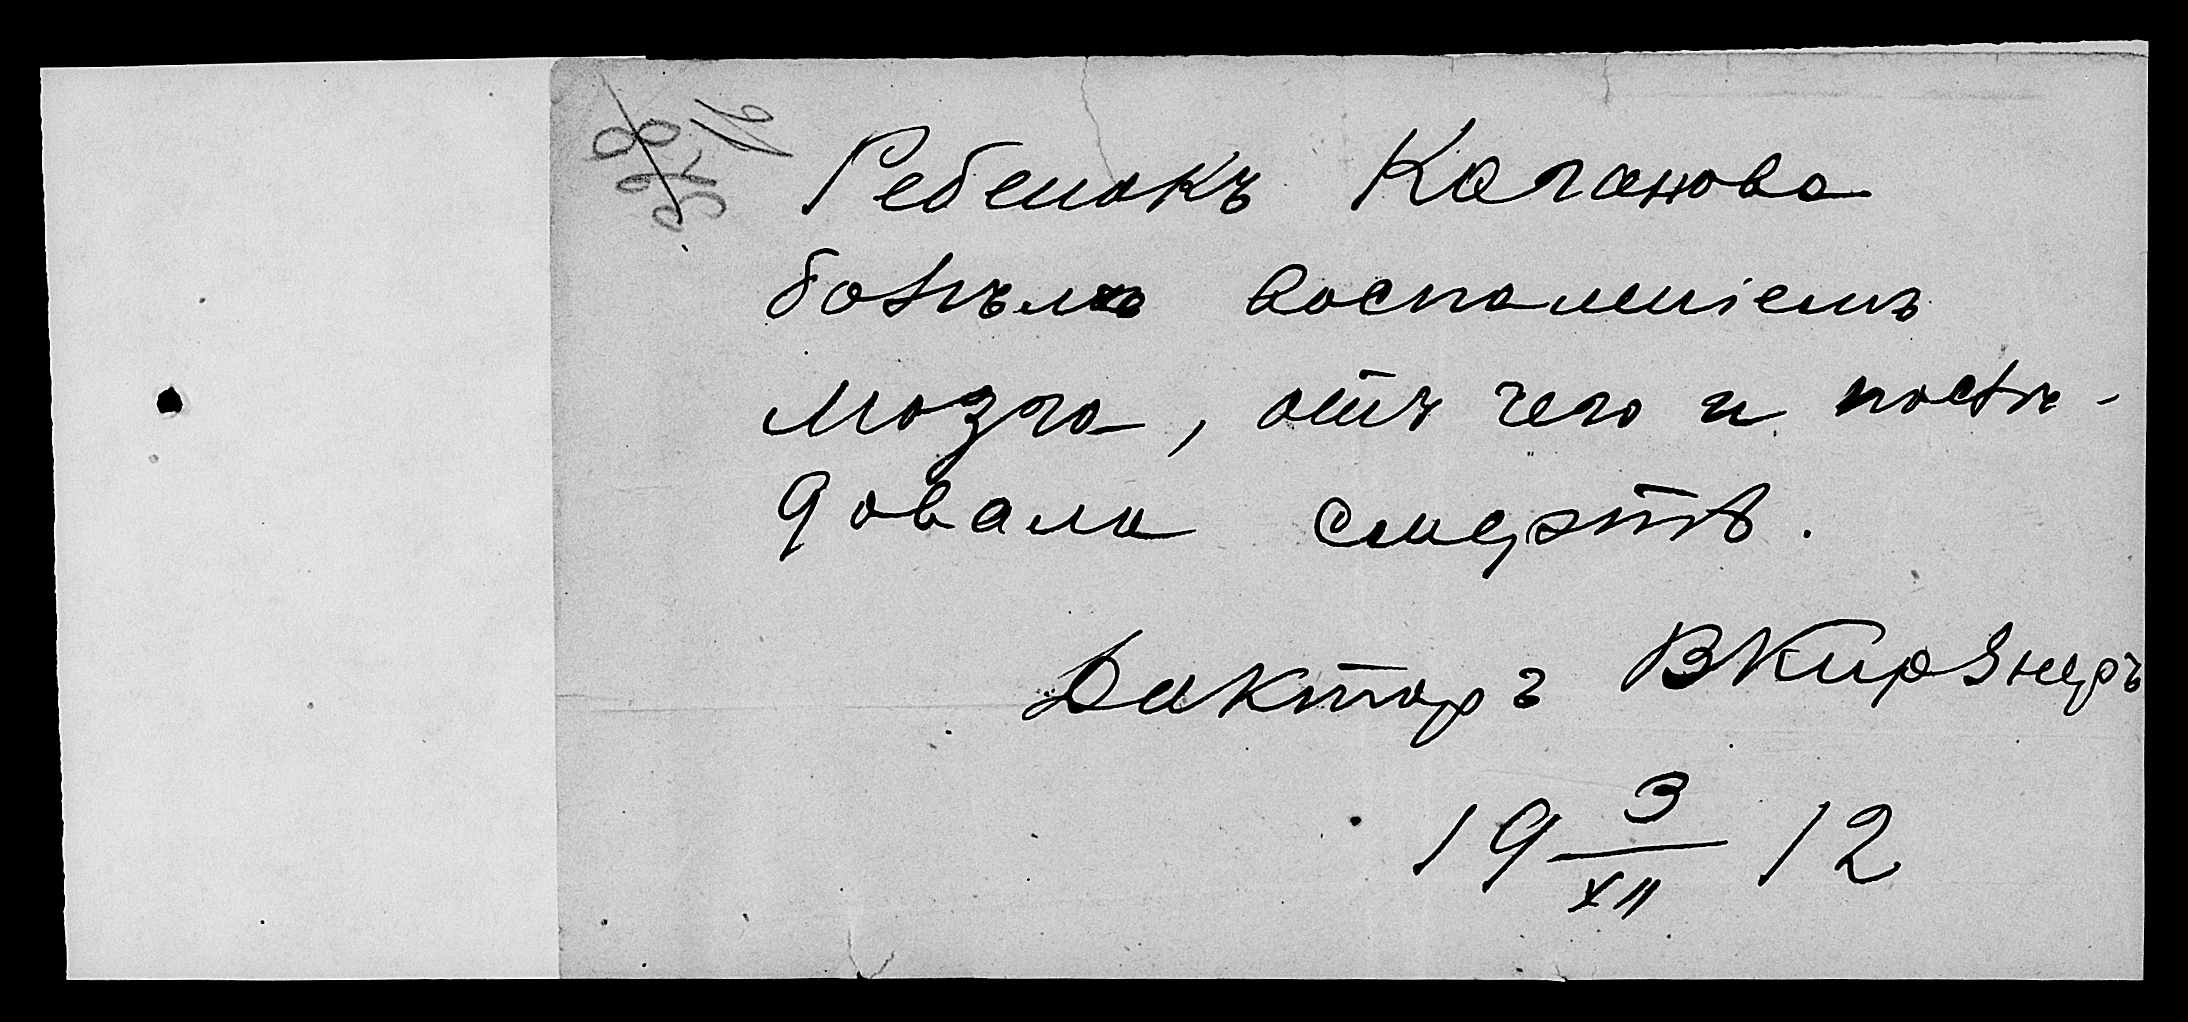 Ребенокъ Каганова
болѣлъ воспаленіемъ
мозга, отъ чего и послѣ-
довала смерть.
Докторъ В Кирзнеръ
19 3/XII 12